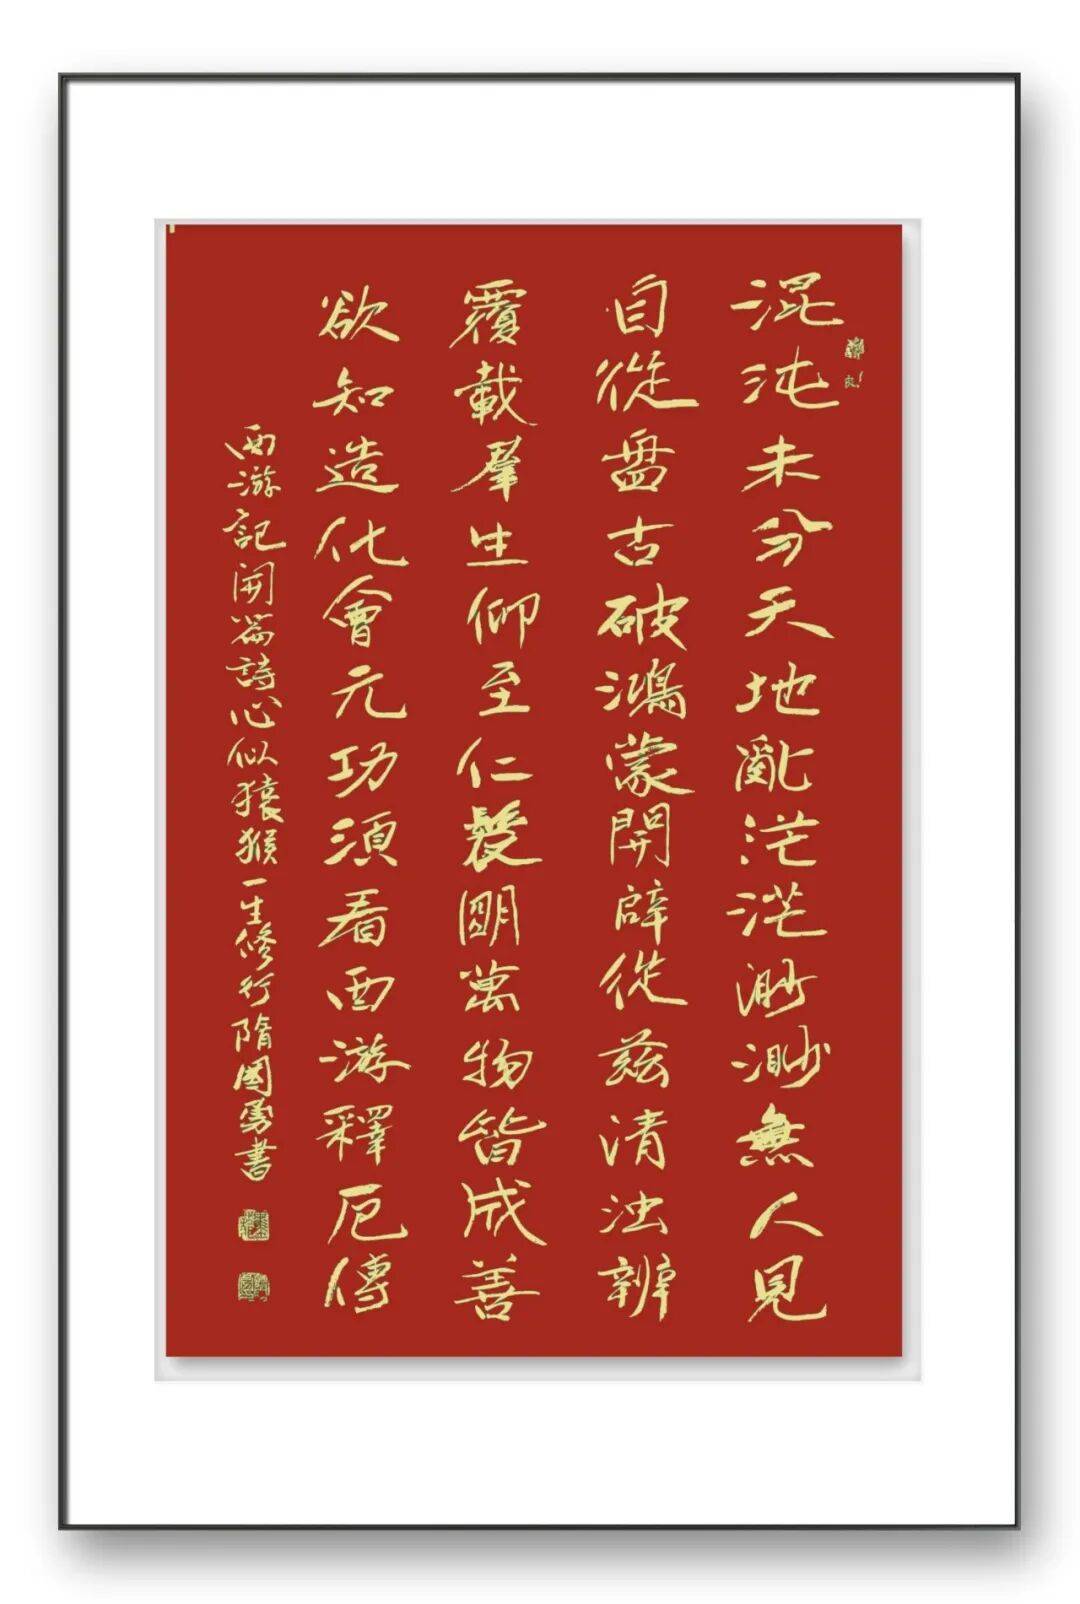 混沌未分天地亂茫茫渺渺無人見
自從盘古破鴻蒙開辟從兹清浊辨
覆載群生仰至仁發明萬物皆成善
欲知造化會元功須看西游釋厄傳
西游記開篇詩心似猿猴一生修行隋國勇書